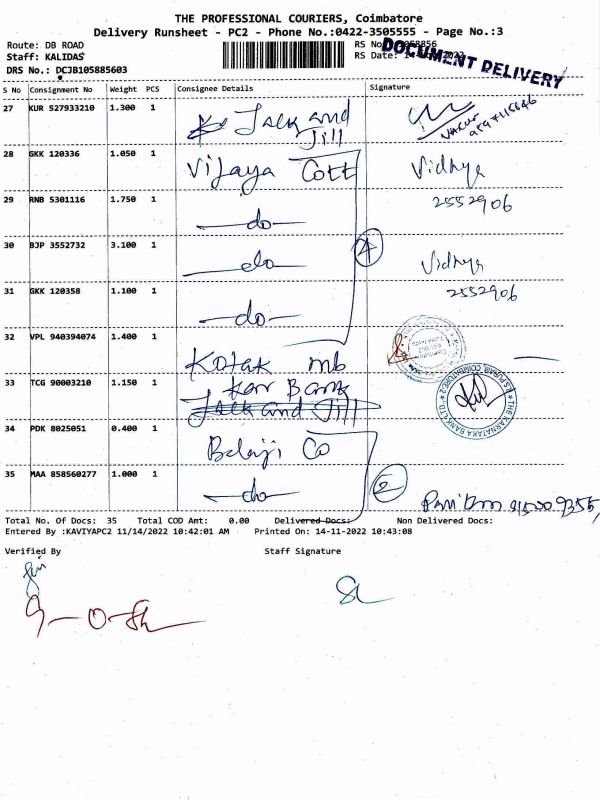 THE PROFESSIONAL COURIERS, Coimbatore
Delivery Runsheet - PC2 - Phone No.:0422-3505555 - Page No.:3
Route: DB ROAD
Staff: KALIDAS
RS Date:
DOCUMENT DELIVERY
DRS No.: DCJB105885603
S No Consignment No Weight PCS Consignee Details Signature
27 KUR 527933210 1.300 1 Jack and Jill
28 GKK 120336 1.050 1 Vijaya Cott Vidhya
29 RNB 5301116 1.750 1 -do- 2552906
30 BJP 3552732 3.100 1 -do- 4 Vidhya
31 GKK 120358 1.100 1 -do- 2552906
32 VPL 940394074 1.400 1 Kotak mb
33 TCG 90003210 1.150 1 Kar Bank
Jack and Jill
THE KARNATAKA BANK LTD. R.S.PURAM, COIMBATORE-2
34 PDK 8025051 0.400 1 Balaji Co
35 MAA 858560277 1.000 1 -do- 2
Total No. Of Docs: 35 Total COD Amt: 0.00 Delivered Docs: Non Delivered Docs:
Entered By :KAVIYAPC2 11/14/2022 10:42:01 AM Printed On: 14-11-2022 10:43:08
Verified By Staff Signature